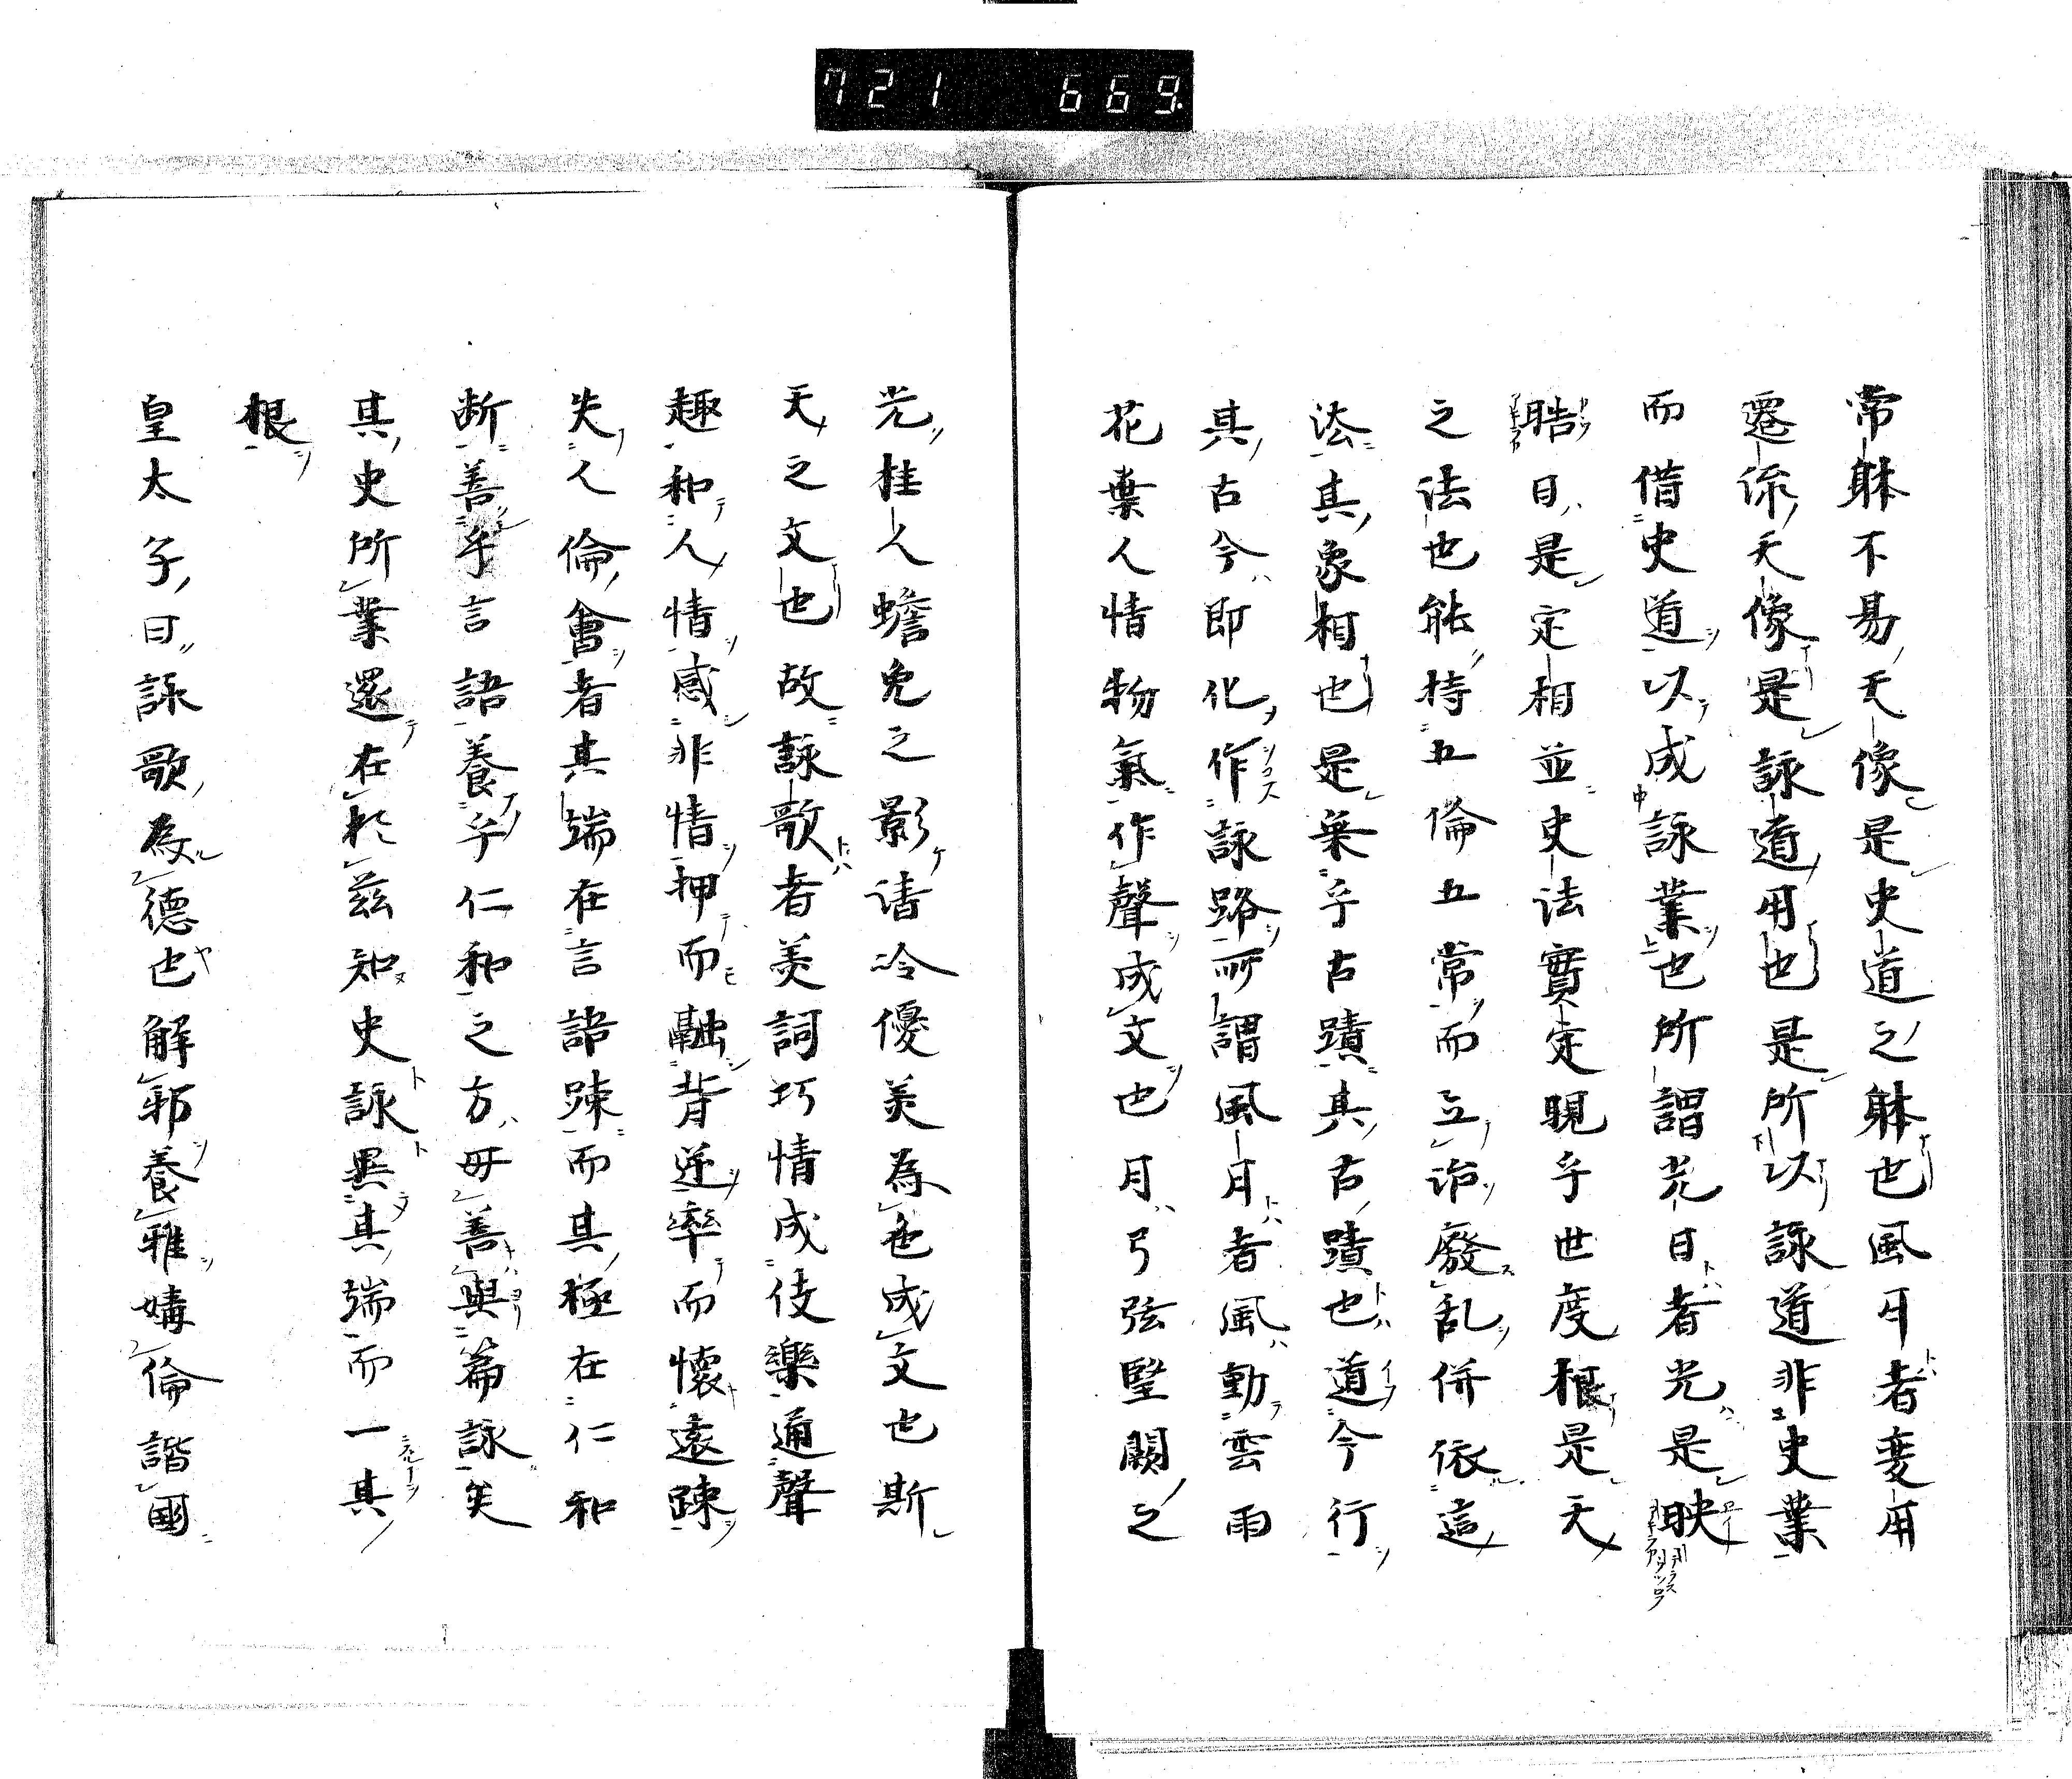 721 669
常躰不易天像是史道之躰也風月者変用
遷流天像是詠道用也是所以詠道非史業
而借史道以成詠業也所謂光日者光是映
晧日是定相並史法實定現乎世度根是天
之法也能持五倫五常而立治廢乱併依這
法其象相也是棄乎古蹟其古蹟也道今行
其古今即化作詠路所謂風月者風動雲雨
花葉人情物氣作聲成文也月弓弦堅闕之
光桂人蟾兔之影清冷優美為色成文也斯
天之文也故詠歌者美詞巧情成伎樂通聲
趣和人情感非情押而融背逆率而懷遠踈
失人倫會者其端在言語踈而其極在仁和
断善乎言語養乎仁和之方毋善與篇詠矣
其史所業還在於茲知史詠異其端而一其
根
皇太子曰詠歌為德也解邪養雅媾倫諧國